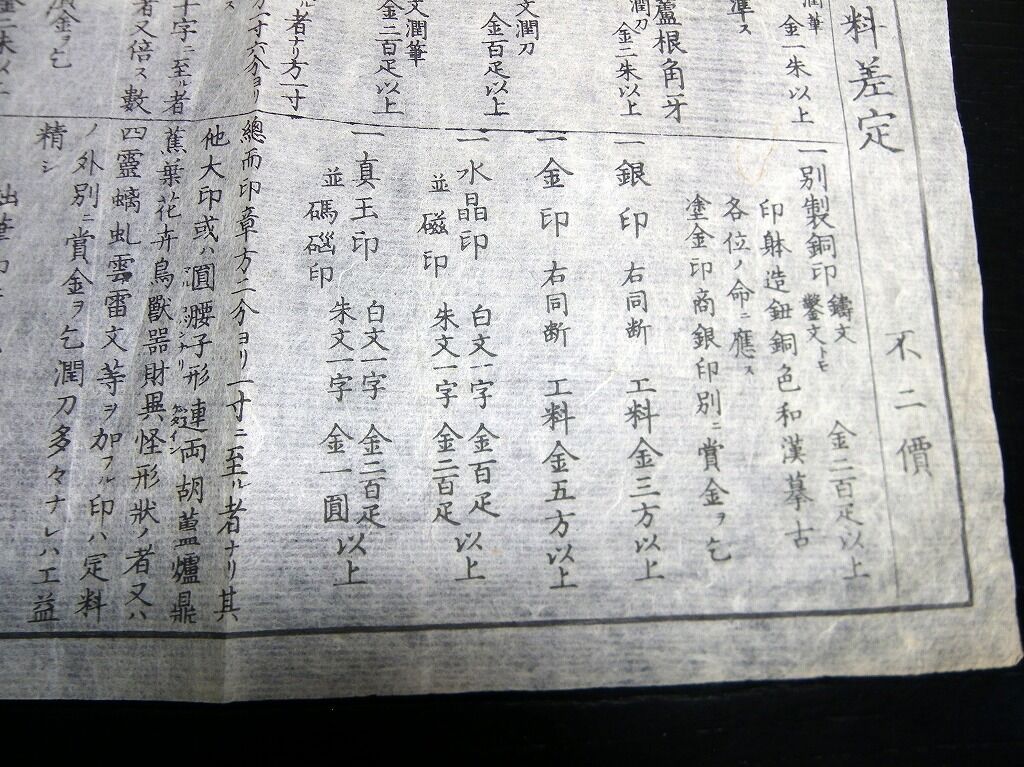 料差定
不二價
潤筆
金一朱以上
準ス
蘆根角牙
潤刀
金二朱以上
文潤刀
金百疋以上
文潤筆
金二百疋以上
者ナリ方一寸
方一寸六分ヨリ
十字ニ至ル者
者又倍ス數
金ヲ乞
一別製銅印 鑄文 鑿文トモ 金二百疋以上
印躰造鈕銅色和漢摹古
各位ノ命ニ應ス
塗金印商銀印別ニ賞金ヲ乞
一銀印 右同断 工料金三方以上
一金印 右同断 工料金五方以上
一水晶印 白文一字 金百疋
並磁印 朱文一字 金二百疋 以上
一真玉印 白文一字 金二百疋
並碼碯印 朱文一字 金一圓 以上
總而印章方二分ヨリ一寸ニ至ル者ナリ其
他大印或ハ圓腰子形連両胡蘆爐鼎
蕉葉花卉鳥獸器財異怪形狀ノ者又ハ
四靈螭虬雲雷文等ヲ加フル印ハ定料
ノ外別ニ賞金ヲ乞潤刀多々ナレハ工益
精シ